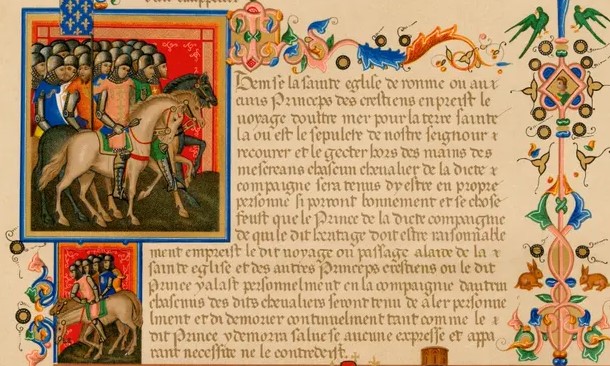 Item se la sainte eglise de romme ou aux
cuns Princeps des crestiens enpreist le
voyage doultre mer pour la terre sainte
la ou est le sepulcre de nostre seignour &
recouvrer et le gecter hors des mains des
mescreans chascun chevalier de la dicte
compaigne sera tenus dy estre en propre
personne si porront bonnement et se chose
feust que le Prince de la dicte compaignie
de qui le dit heritage doit estre raisonnable
ment empreist le dit voyage ou passage a laide de la
sainte eglise et des autres Princeps crestiens ou le dit
Prince y alast personnelment en la compaignie dautrui
chascuns des dits chevaliers seront tenu de aler personne
lment et di demorer continuelment tant comme le
dit Prince y demorra salu se aucune expresse et appa
rant necessite ne le contredeist.